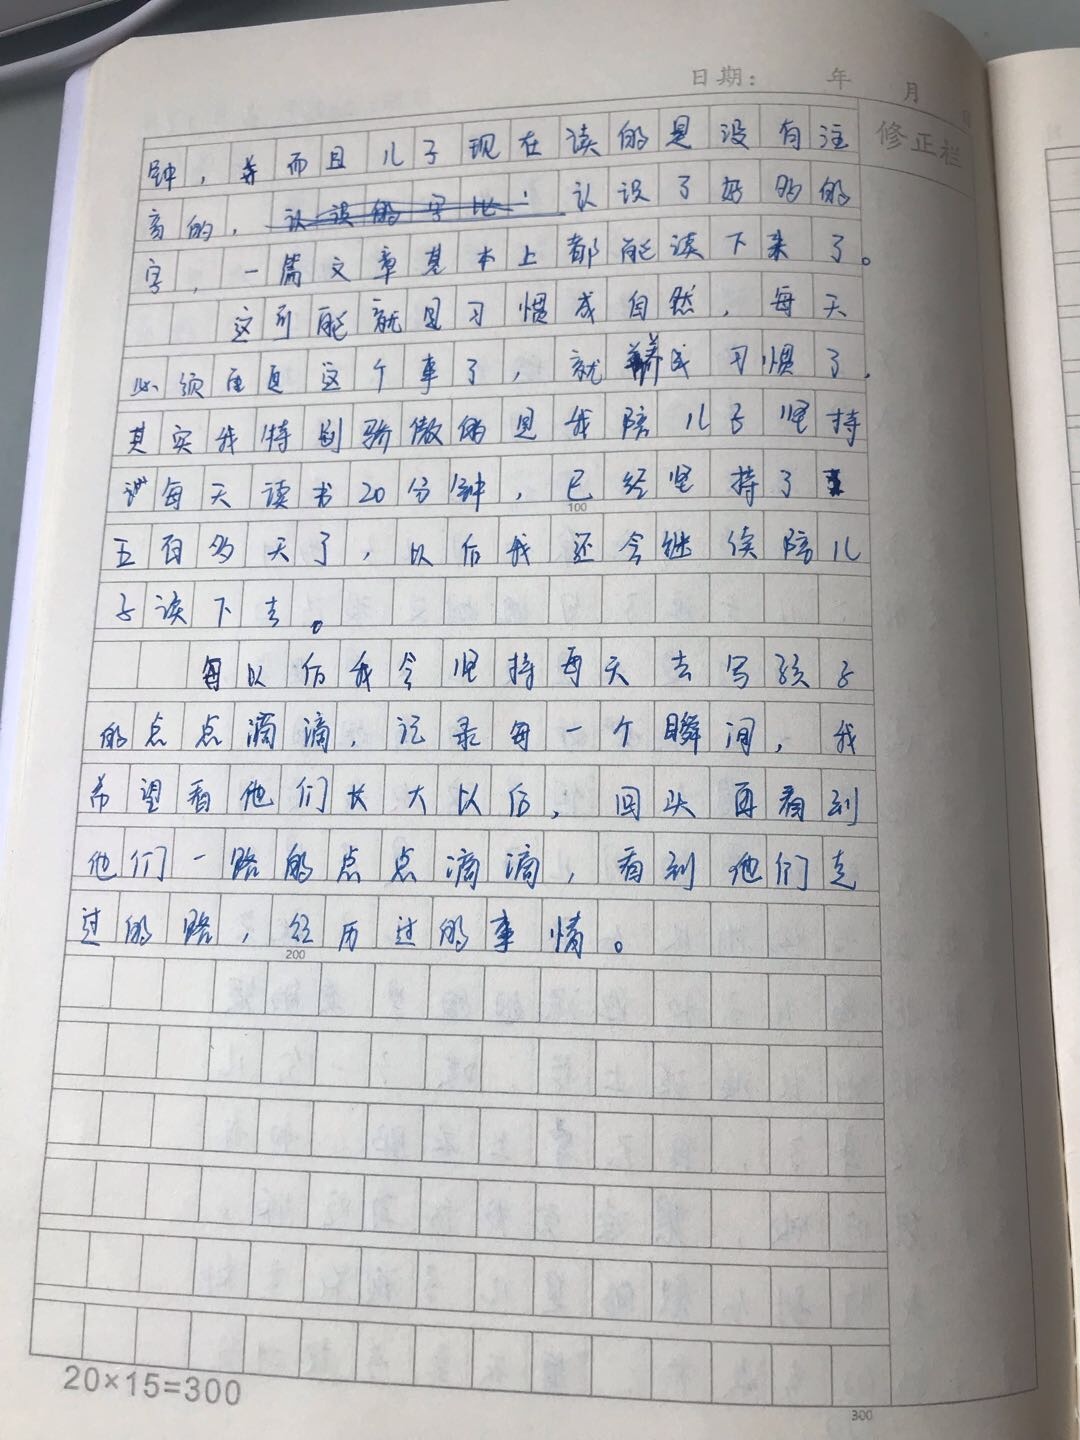 日期： 年 月 日
修正栏
钟，并而且儿子现在读的是没有注
音的，认识的字比：认识了好多的
字，一篇文章基本上都能读下来了。
这可能就是习惯成自然，每天
必须重复这个事了，就养成习惯了，
其实我特别骄傲的是我陪儿子坚持
每天读书20分钟，已经坚持了
100
五百多天了，以后我还会继续陪儿
子读下去。
每以后我会坚持每天去写孩子
的点点滴滴，记录每一个瞬间，我
希望看他们长大以后，回头再看到
他们一路的点点滴滴，看到他们走
过的路，经历过的事情。
200
20×15=300
300